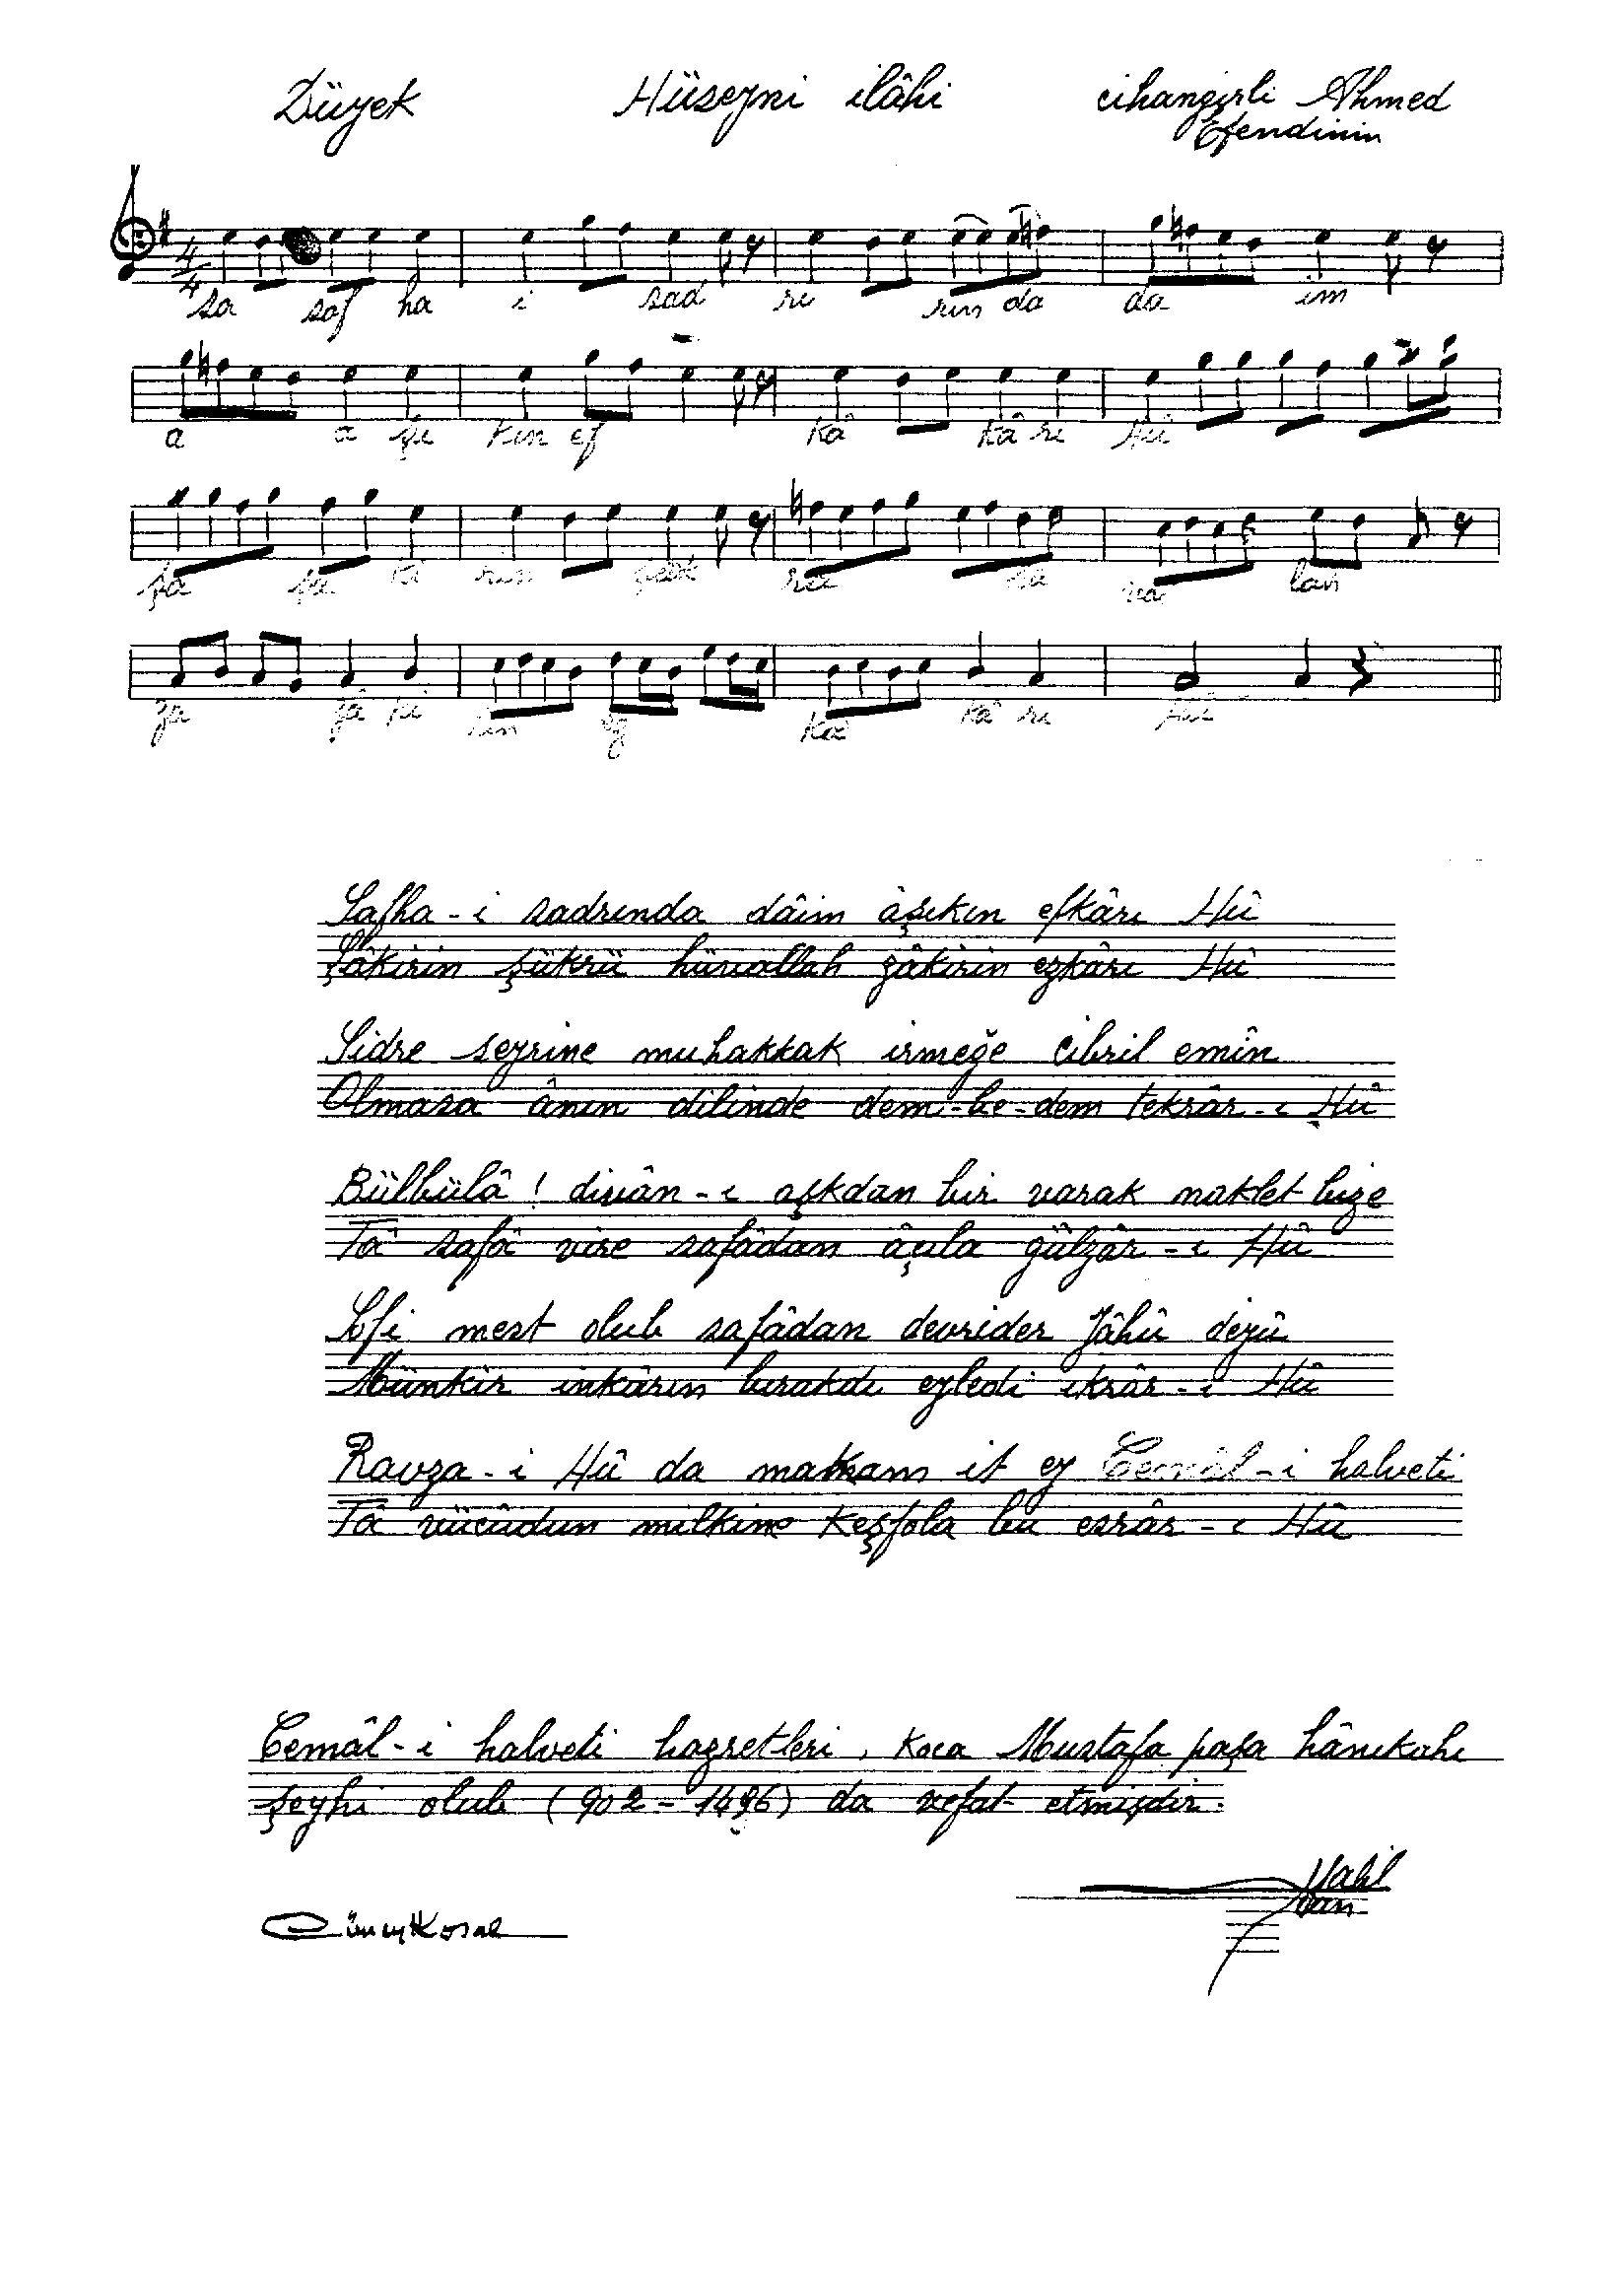 Düyek Hüseyni ilâhi cihangirli Ahmed
Efendinin
4/4
sa saf ha i sad rı rın da da im
a â şı kın ef kâ kâ rı Hû
şâ şâ ki rin şük rü
zâ zâ ki rin ez kâ kâ rı Hû
Safha-i sadrında dâim âşıkın efkârı Hû
Şâkirin şükrü hüvallah zâkirin ezkârı Hû
Sidre seyrine muhakkak irmeğe Cibril emîn
Olmasa ânın dilinde dem-be-dem tekrâr-ı Hû
Bülbülâ! divân-ı aşkdan bir varak naklet bize
Tâ safâ vire safâdan âçıla gülzâr-ı Hû
Sofi mest olub safâdan devrider Yâhû deyû
Münkir inkârın bırakdı eyledi ikrâr-ı Hû
Ravza-i Hû da makam it ey Cemâl-i halveti
Tâ vücûdun milkine keşfola bu esrâr-ı Hû
Cemâl-i halveti hazretleri, Koca Mustafa paşa hânıkahı
şeyhi olub (902-1496) da vefat etmişdir.
Halil
Can
Cüneyt Kosal